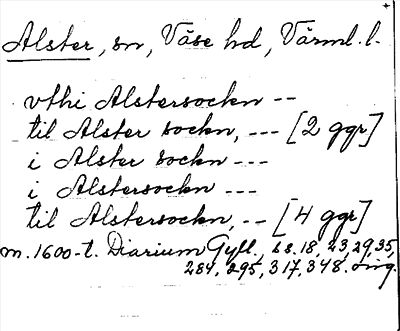 Alster, sn, Väse hd, Värml. l.
vthi Alstersockn --
til Alster sockn, --- [2 ggr]
i Alster sockn ---
i Alstersockn ---
til Alstersockn, -- [4 ggr]
m. 1600-t. Diarium Gyll., s. 18, 23, 29, 35,
284, 295, 317, 348. orig.